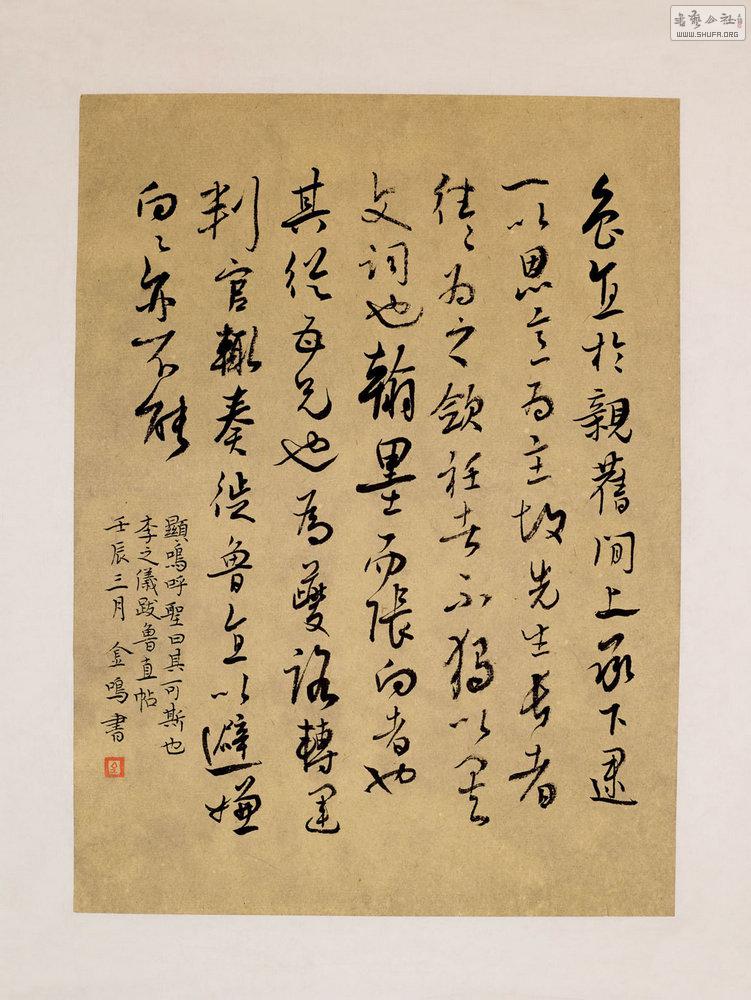 魯直於親舊間上承下逮
一以恩意為主故先生長者
往〻為之斂衽者不獨以其
文詞也翰墨而張向者也
其從母兄也為夔路轉運
判官輒奏徙魯直以避嫌
向亦不能
顯嗚呼聖曰其可斯也
李之儀跋魯直帖
壬辰三月 金鳴書
書藝公社
WWW.SHUFA.ORG